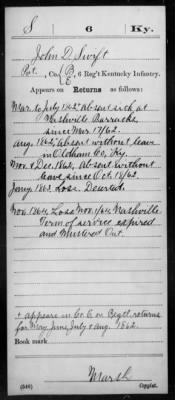 S 6 Ky.
John D. Swift
Pvt., Co. B/E, 6 Reg't Kentucky Infantry.
Appears on Returns as follows:
Mar. to July 1862, absent sick at
Nashville Barracks
since Mar. 17/62.
Aug. 1862, absent without leave
in Oldham Co., Ky.
Nov. & Dec. 1862, Absent without
leave since Oct. 18/62.
Jany. 1863 Loss. Deserted.
Nov. 1864 Loss Nov. 1/64 Nashville
Term of service expired
and Mustered Out.
+ appears in Co. E on Regtl returns
for May, June, July & Aug. 1862.
Book mark
Marsh
(546) Copyist.